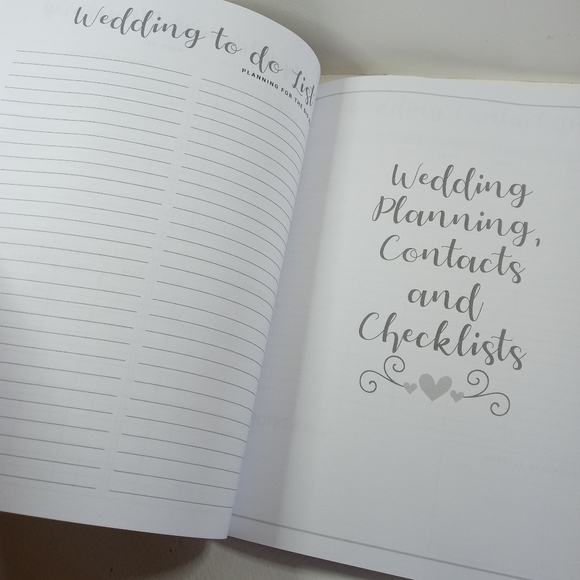 Wedding to do List
PLANNING FOR THE
Wedding
Planning,
Contacts
and
Checklists